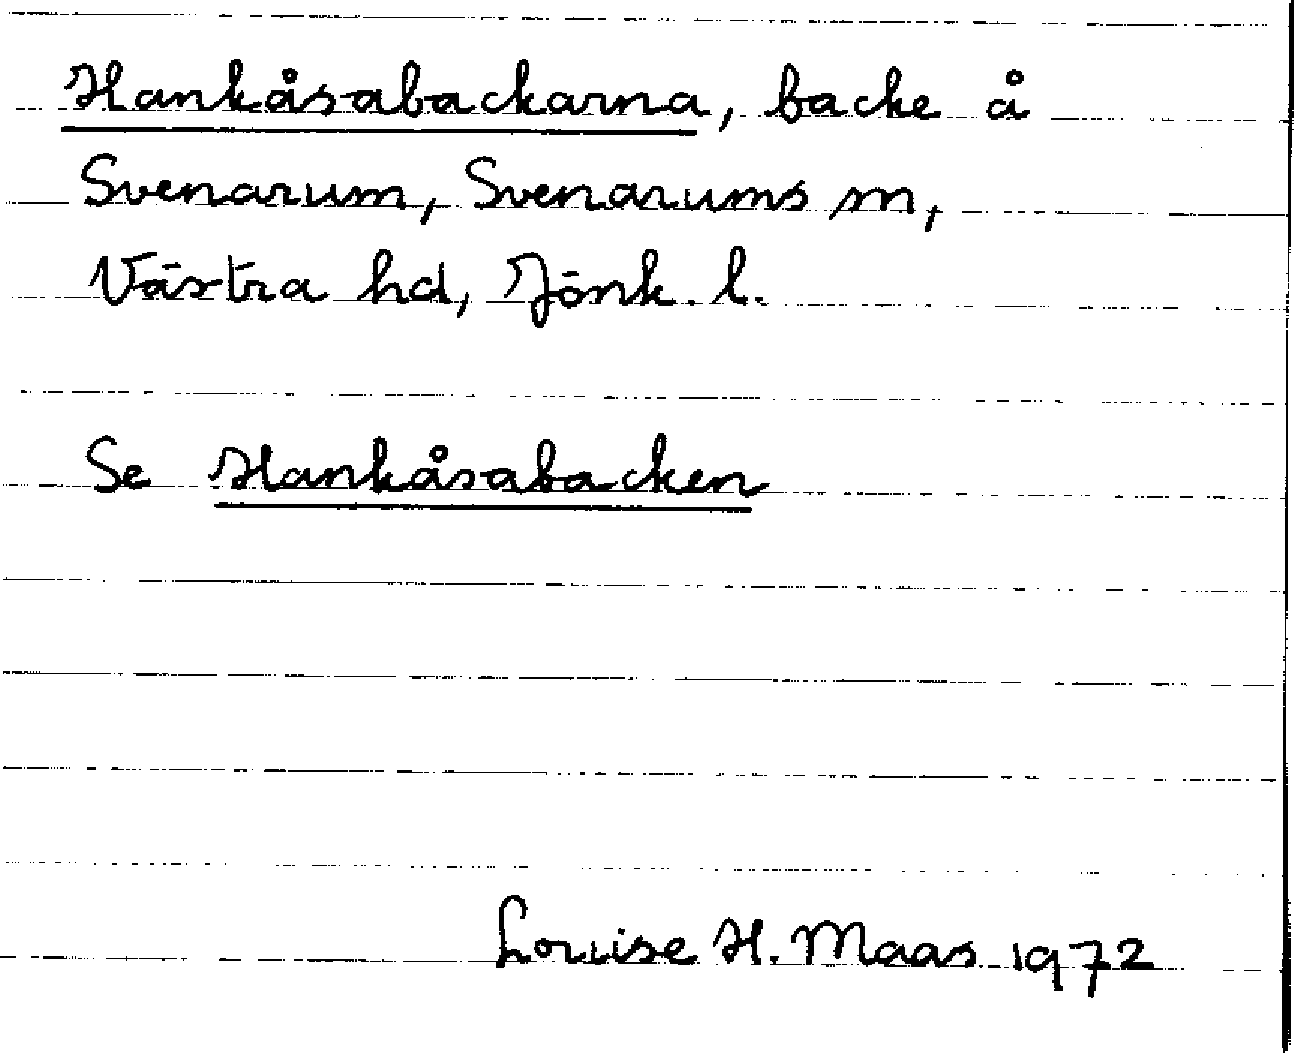 Hankåsabackarna, backe å
Svenarum, Svenarums sn,
Västra hd, Jönk. l.
Se Hankåsabacken
Louise H. Maas 1972